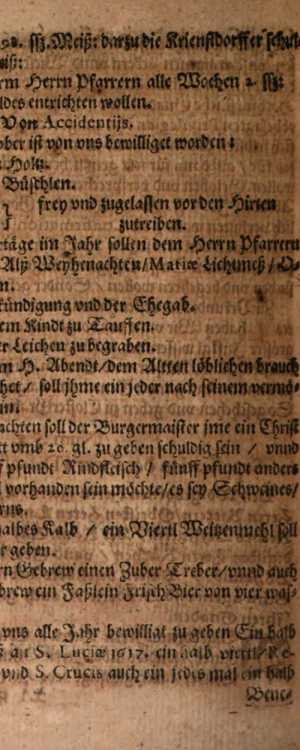 92. ßß. Meiß: darzu die Krienstdorffer schul
eiß:
rm Herrn Pfarrern alle Wochen 2. ßß:
ldes entrichten wollen.
Von Accidentijs.
ober ist von vns bewilliget worden:
Holtz.
Büschlen.
frey vnd zugelassen vor den Hirten
zutreiben.
rtäge im Jahr sollen dem Herrn Pfarrern
Alß Weyhenachten/Mariæ Liechtmeß/O-
n.
kündigung vnd der Ehegab.
em Kindt zu Tauffen.
er Leichen zu begraben.
m H. Abendt/dem Altten löblichen brauch
het/ soll jhme ein jeder nach seinem vermö-
achten soll der Burgermaister jme ein Christ
tt vmb 20. gl. zu geben schuldig sein / vnnd
ff pfundt Rindfleisch / fünff pfundt anders
l vorhanden sein möchte/es sey Schweines/
rns.
halbes Kalb / ein Viertl Weitzenmehl soll
r geben.
rn Gebrew einen Zuber Treber/vnnd auch
brew ein Faßlein Frisch Bier von vier was-
vns alle Jahr bewilligt zu geben Ein halb
S. Luciæ 1617. ein halb viertl/Re-
vnd S. Crucis auch ein jedes mal ein halb
Bene-